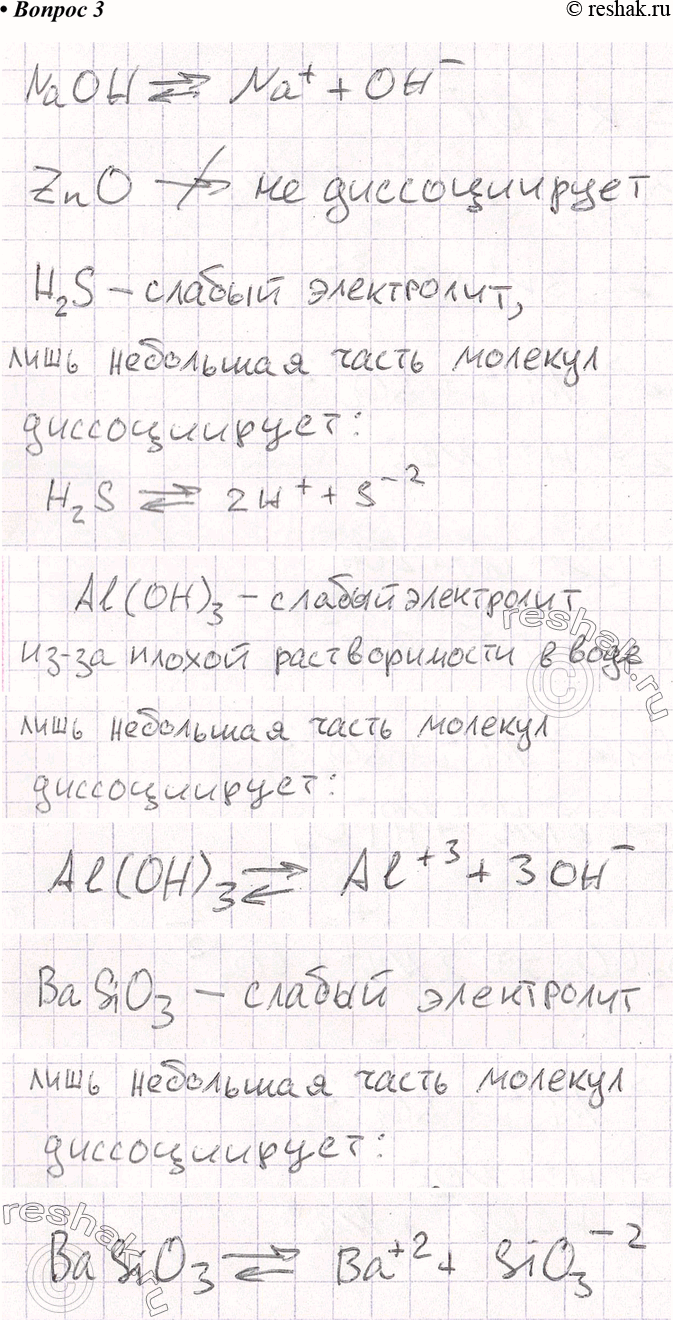 • Вопрос 3
© reshak.ru
NaOH ⇄ Na⁺ + OH⁻
ZnO ↛ не диссоциирует
H₂S – слабый электролит,
лишь небольшая часть молекул
диссоциирует:
H₂S ⇄ 2H⁺ + S⁻²
Al(OH)₃ – слабый электролит
из-за плохой растворимости в воде
лишь небольшая часть молекул
диссоциирует:
Al(OH)₃ ⇄ Al⁺³ + 3OH⁻
BaSiO₃ – слабый электролит
лишь небольшая часть молекул
диссоциирует:
BaSiO₃ ⇄ Ba⁺² + SiO₃⁻²
reshak.ru
©
reshak.ru
©